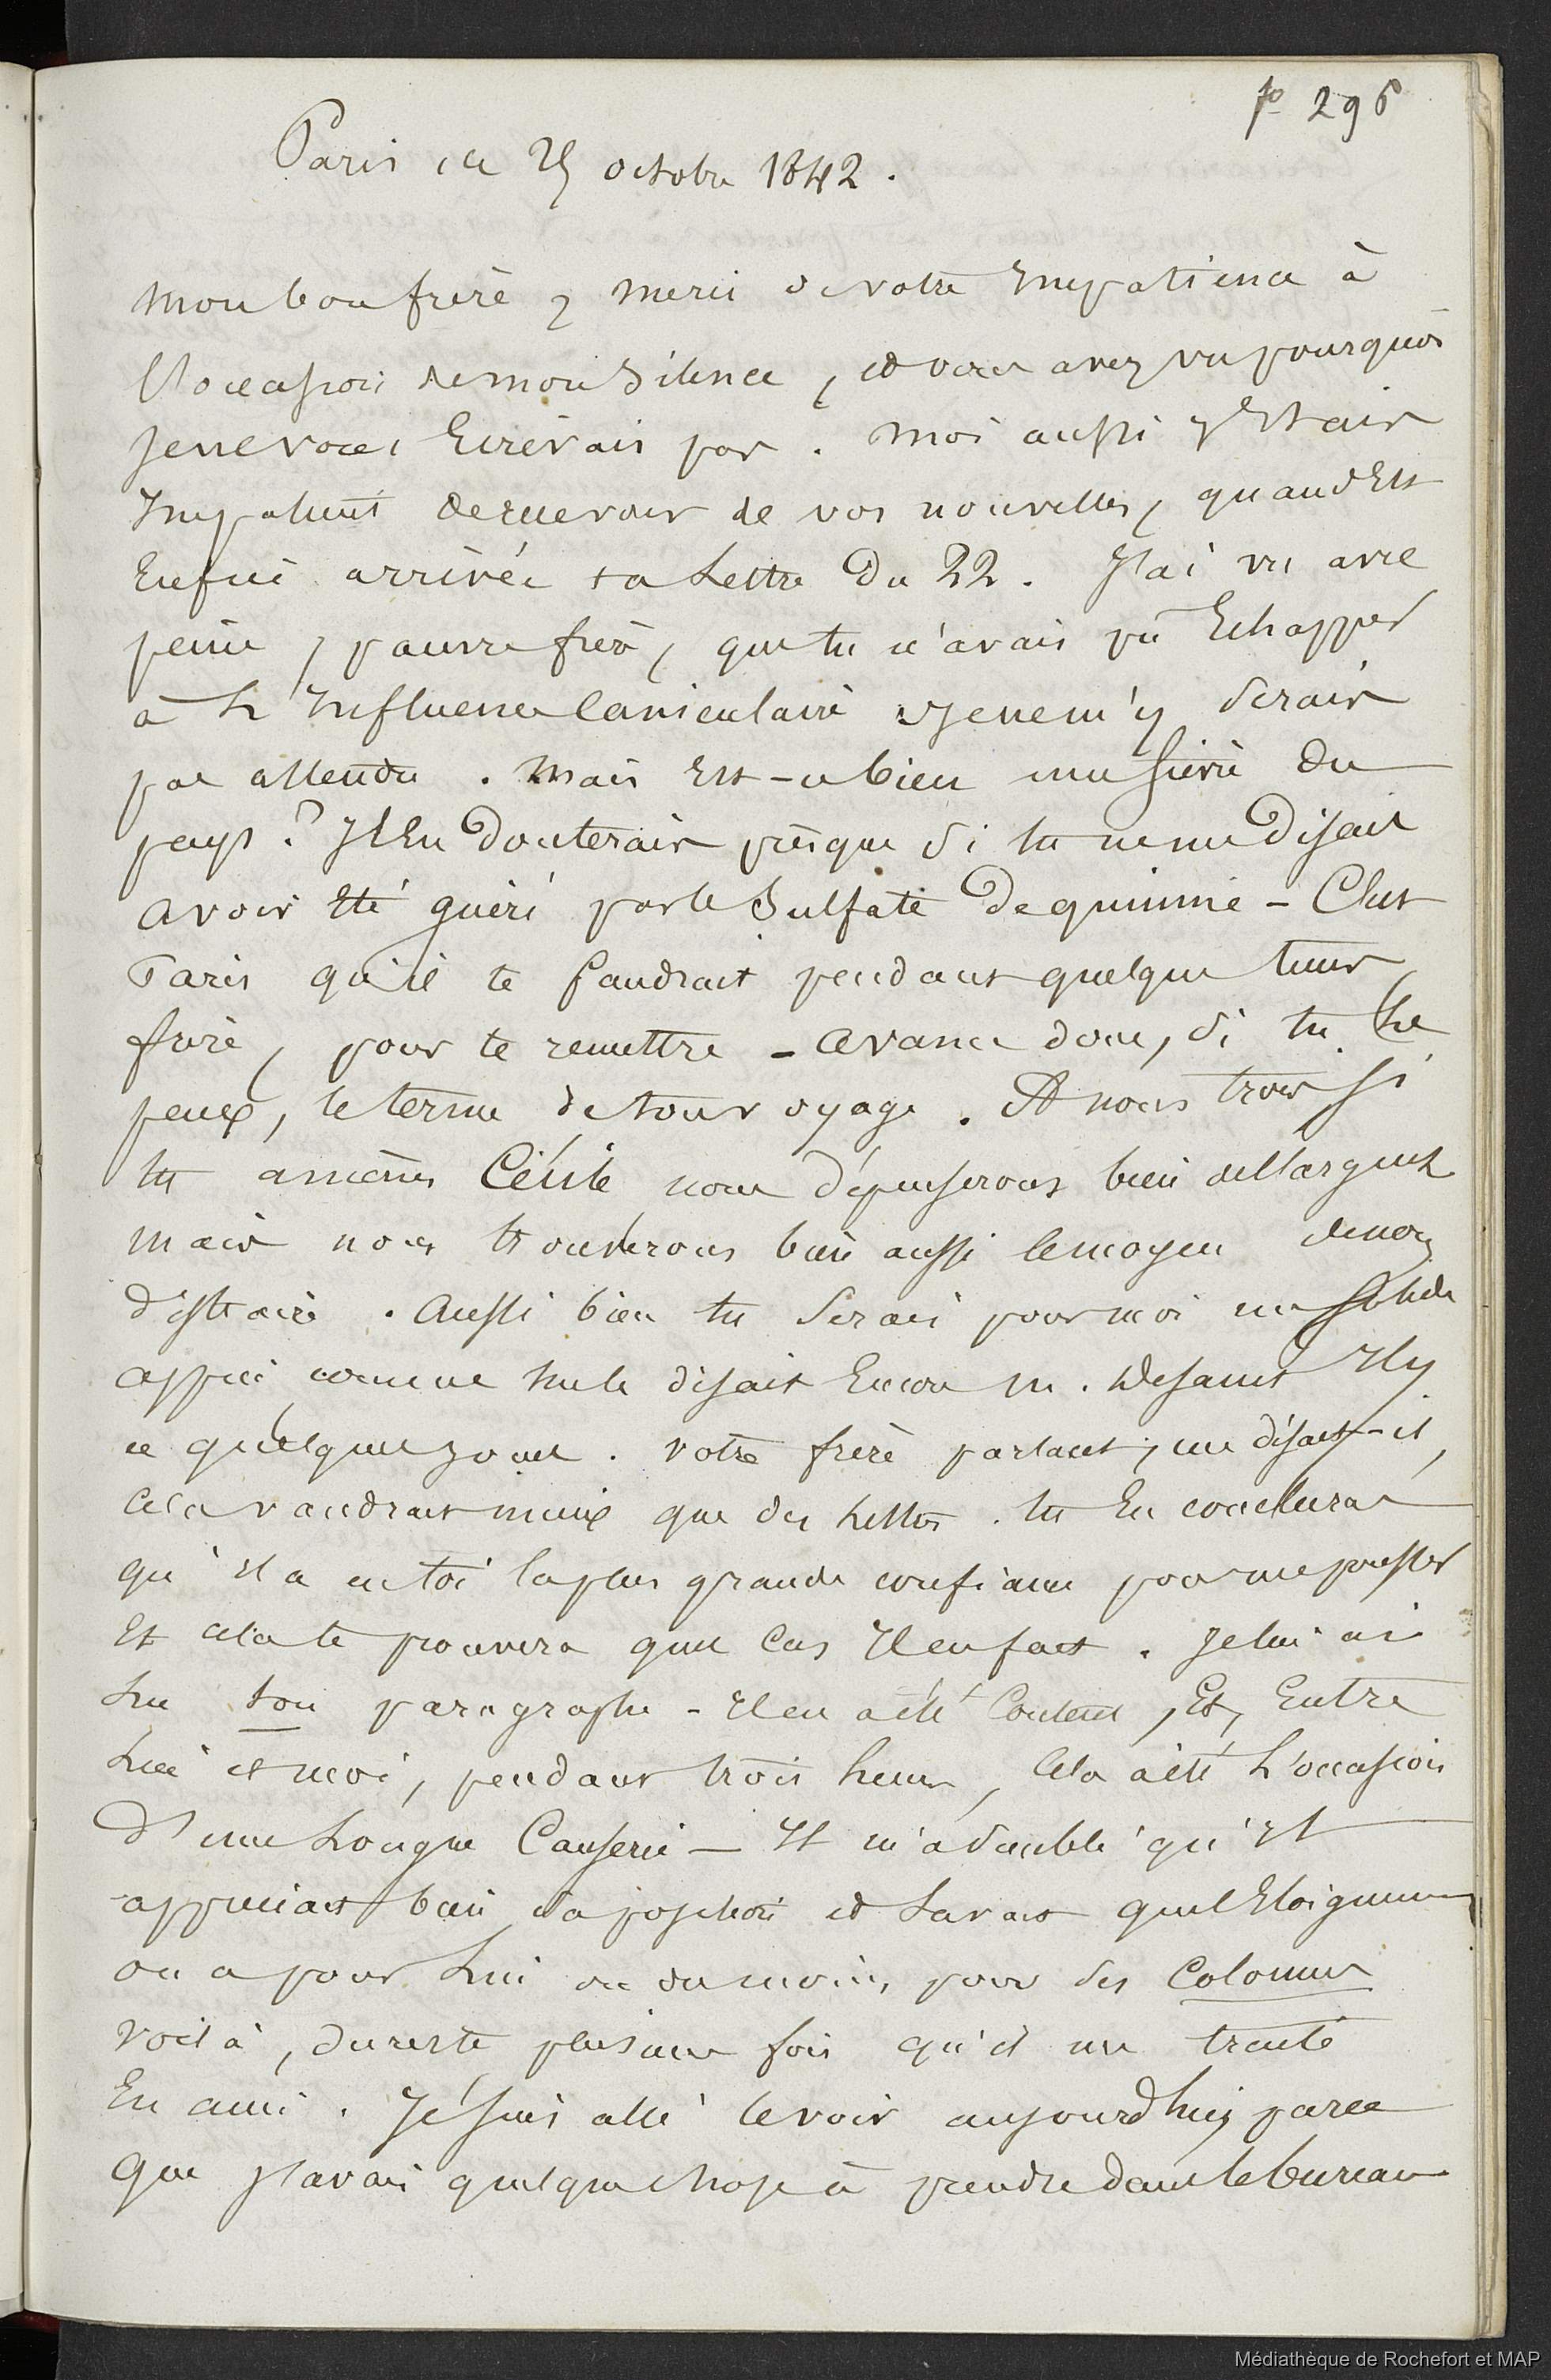 po 296
Paris ce 25 octobre 1842.
Mon bon frère, merci de votre Impatience à
l'occasion de mon silence, et vous avez vu pourquoi
je ne vous Ecrivais pas. Moi aussi j'Etais
Impatient de recevoir de vos nouvelles, quand Est
Enfin arrivée ta Lettre du 22. J'ai vu avec
peine, pauvre frère, que tu n'avais pû Echapper
à L'Influence Caniculaire je ne m'y serais
pas attendu. Mais Est-ce bien une fièvre du
pays? J'En Douterais presque si tu ne me Disais
avoir Eté guéri par le Sulfate De quinine - C'est
Paris qu'il te faudrait pendant quelque tems,
frère, pour te remettre - avance donc, si tu Le
peux, le terme de ton voyage. A nous trois si
tu amènes Cécile nous dépenserons bien de l'argent
mais nous trouverons bien aussi le moyen de nous
distraire. Aussi bien tu serais pour moi un solide
appui comme me le disait Encore M. Desaint Il y
a quelques jours. Votre frère parlant, me disait-il,
cela vaudrait mieux que des Lettres. tu En concluras
qu'Il a en toi la plus grande confiance pour me pousser
Et cela te prouvera quel Cas Il en fait. Je lui ai
Lu ton paragraphe - Il en a été Content, Et, Entre
Lui et moi, pendant trois heures, Cela a été L'occasion
D'une Longue Causerie - Il m'a semblé qu'Il
appréciait bien sa position et Savait quel Eloignement
on a pour Lui ou du moins pour ses Colonnes
voilà, du reste plusieurs fois qu'il me traite
En ami. Je suis allé le voir aujourd'hui parce
que J'avais quelque chose à prendre dans le bureau
Médiathèque de Rochefort et MAP